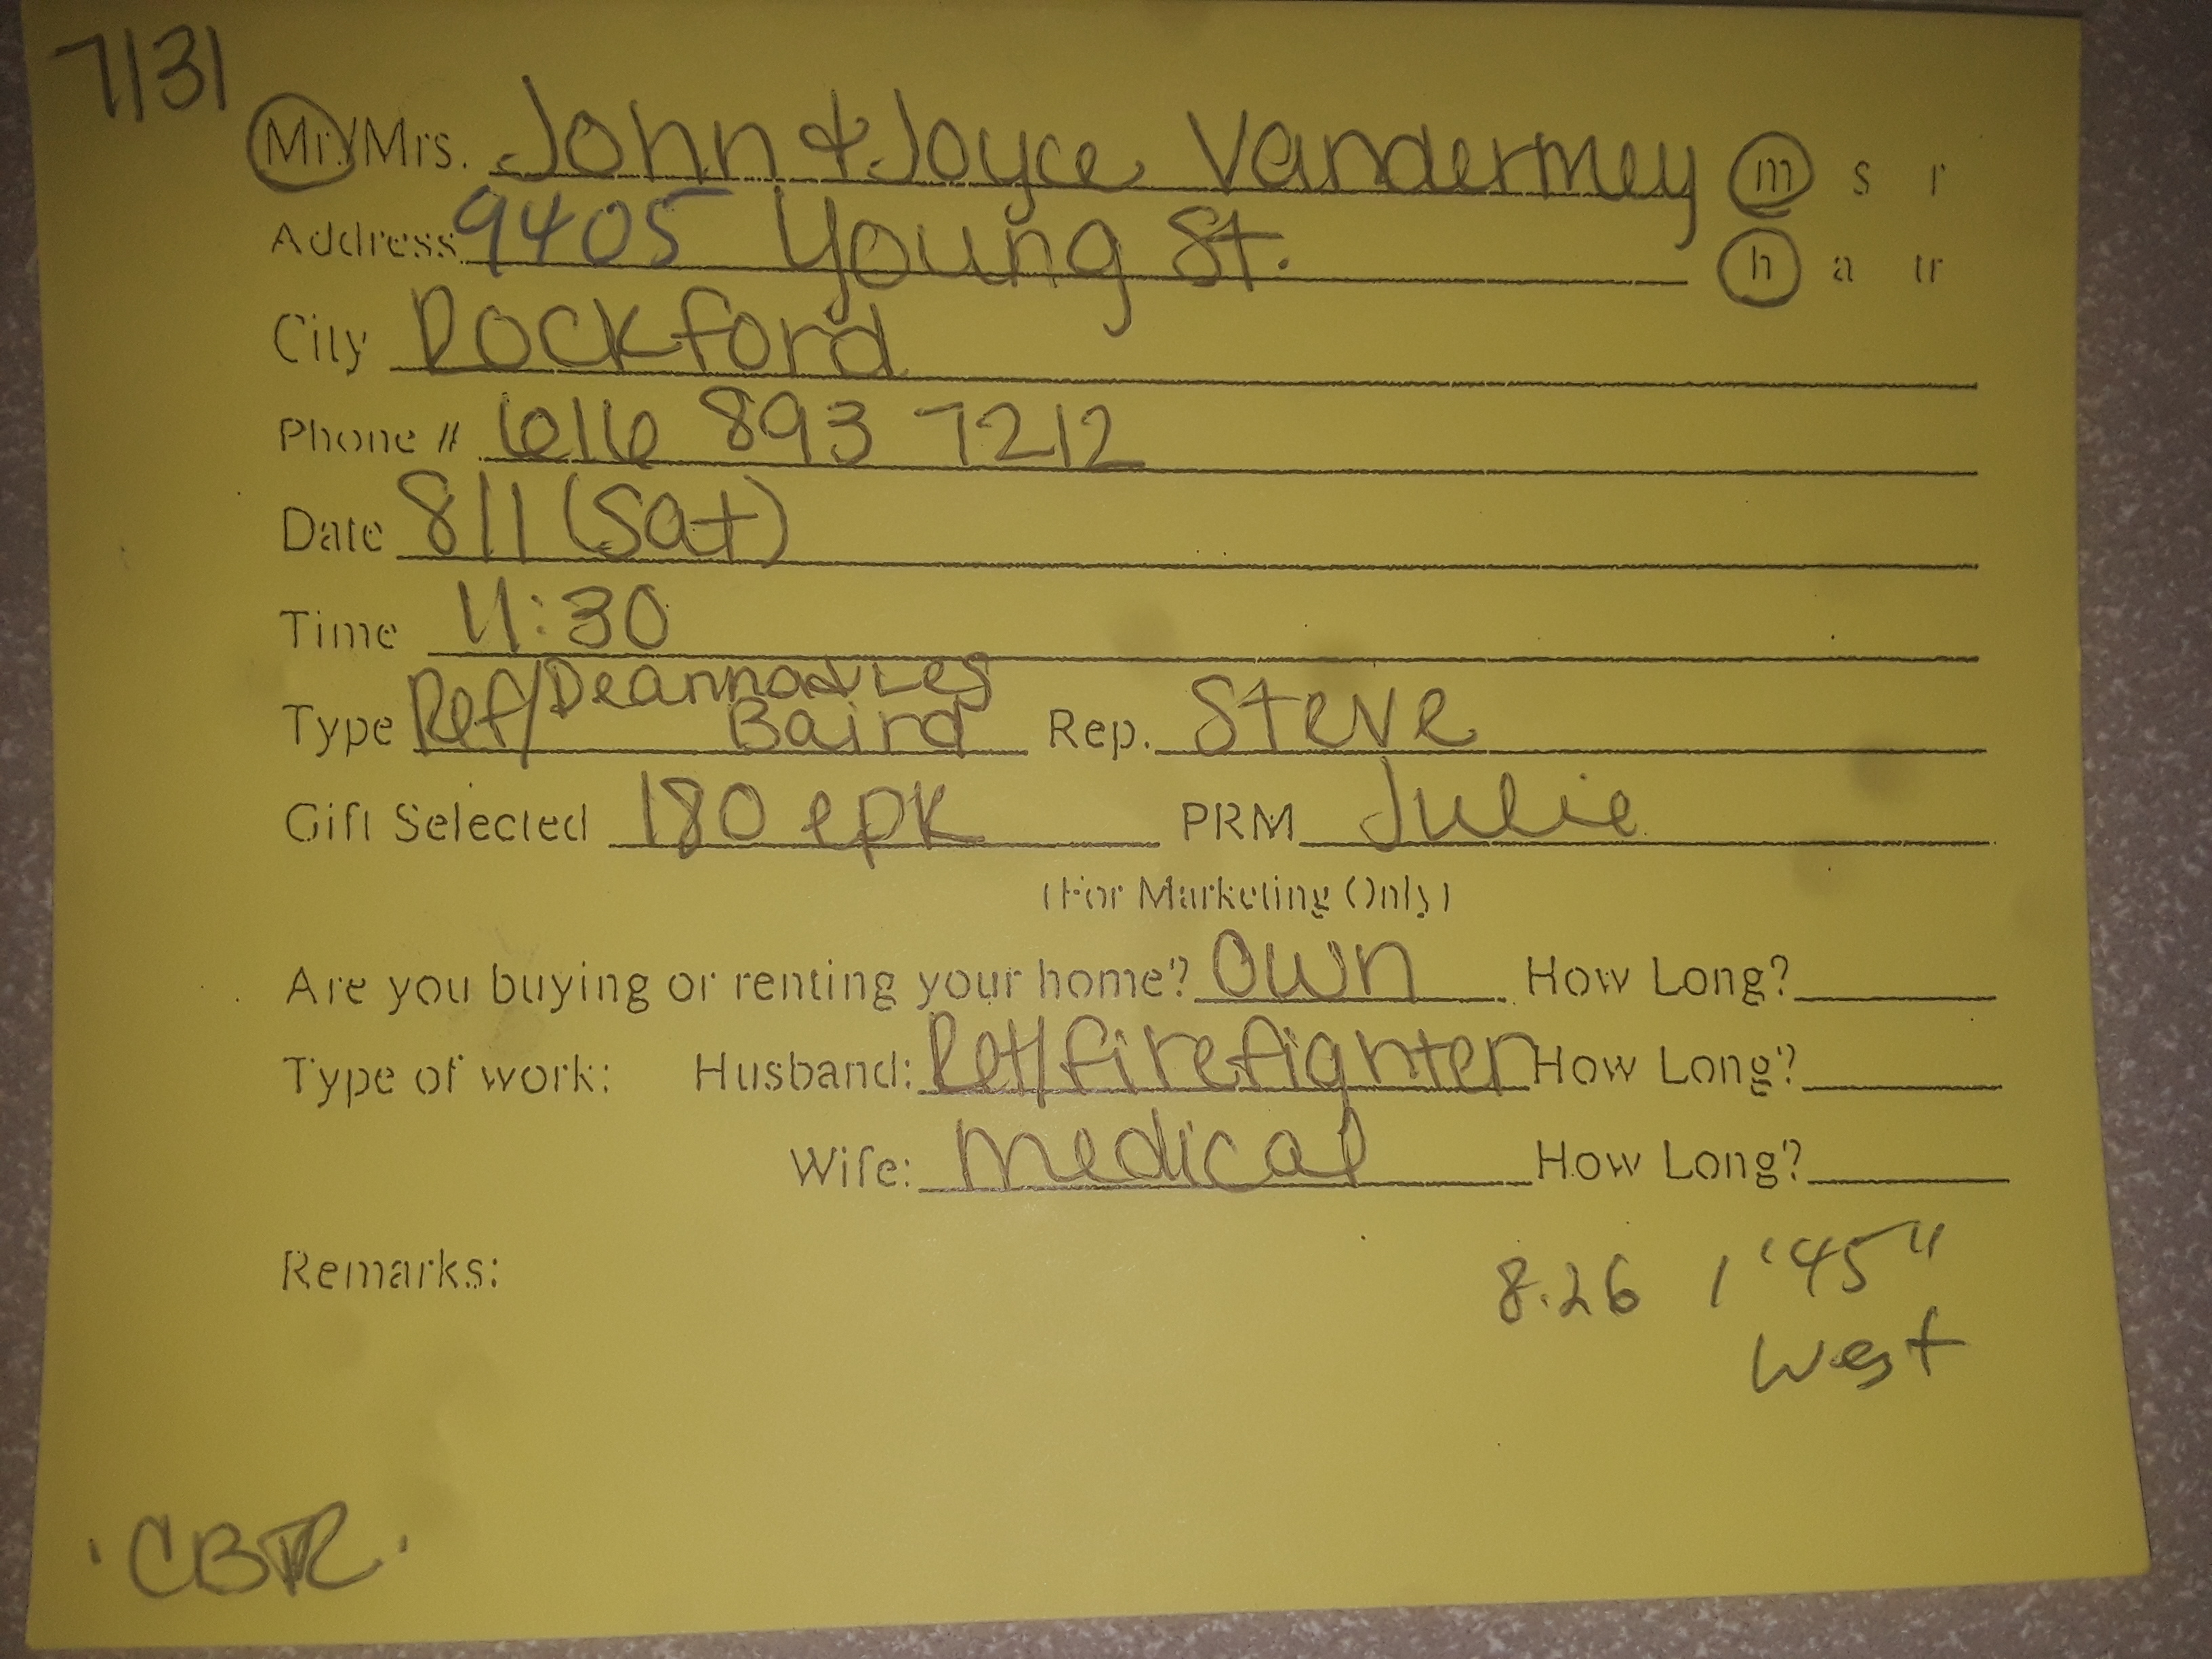 7/31
Mr./Mrs. John & Joyce Vandermey m s r
Address 9405 Young St. h a tr
City Rockford
Phone # 616 893 7212
Date 8/1 (Sat)
Time 11:30
Type Ref/Deanna & Les Baird Rep. Steve
Gift Selected 180 epk PRM Julie
(For Marketing Only)
Are you buying or renting your home? Own How Long?
Type of work: Husband: Ret/firefighter How Long?
Wife: medical How Long?
Remarks:
8.26 1'45"
West